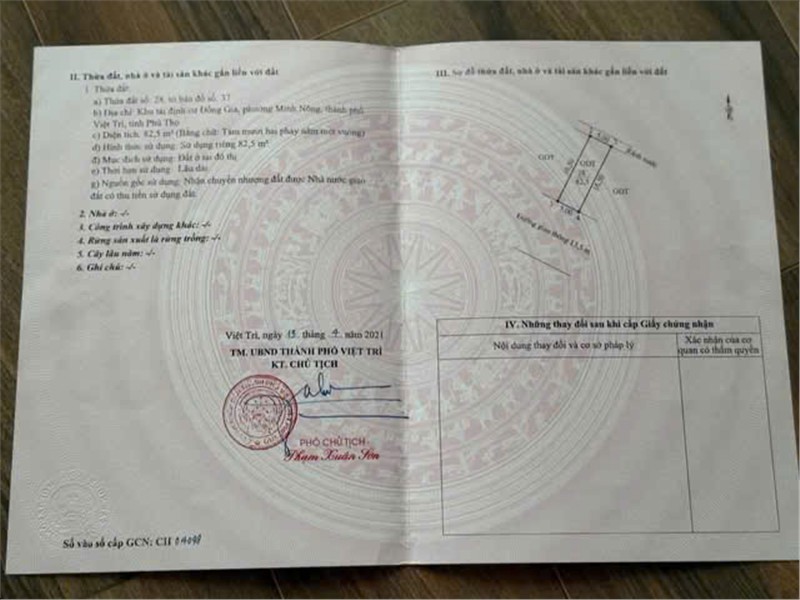 II. Thửa đất, nhà ở và tài sản khác gắn liền với đất
1. Thửa đất:
a) Thửa đất số: 28, tờ bản đồ số: 37
b) Địa chỉ: Khu tái định cư Đồng Gia, phường Minh Nông, thành phố
Việt Trì, tỉnh Phú Thọ
c) Diện tích: 82,5 m² (Bằng chữ: Tám mươi hai phảy năm mét vuông)
d) Hình thức sử dụng: Sử dụng riêng 82,5 m².
đ) Mục đích sử dụng: Đất ở tại đô thị
e) Thời hạn sử dụng: Lâu dài
g) Nguồn gốc sử dụng: Nhận chuyển nhượng đất được Nhà nước giao
đất có thu tiền sử dụng đất.
2. Nhà ở: -/-
3. Công trình xây dựng khác: -/-
4. Rừng sản xuất là rừng trồng: -/-
5. Cây lâu năm: -/-
6. Ghi chú: -/-
Việt Trì, ngày 15 tháng 9 năm 2021
TM. UBND THÀNH PHỐ VIỆT TRÌ
KT. CHỦ TỊCH
PHÓ CHỦ TỊCH
Phạm Xuân Sơn
Số vào sổ cấp GCN: CH
III. Sơ đồ thửa đất, nhà ở và tài sản khác gắn liền với đất
5.00
Rãnh nước
GDT
GDT
28
82,5
GDT
5.00
Đường giao thông 13,5 m
IV. Những thay đổi sau khi cấp Giấy chứng nhận
Nội dung thay đổi và cơ sở pháp lý
Xác nhận của cơ
quan có thẩm quyền